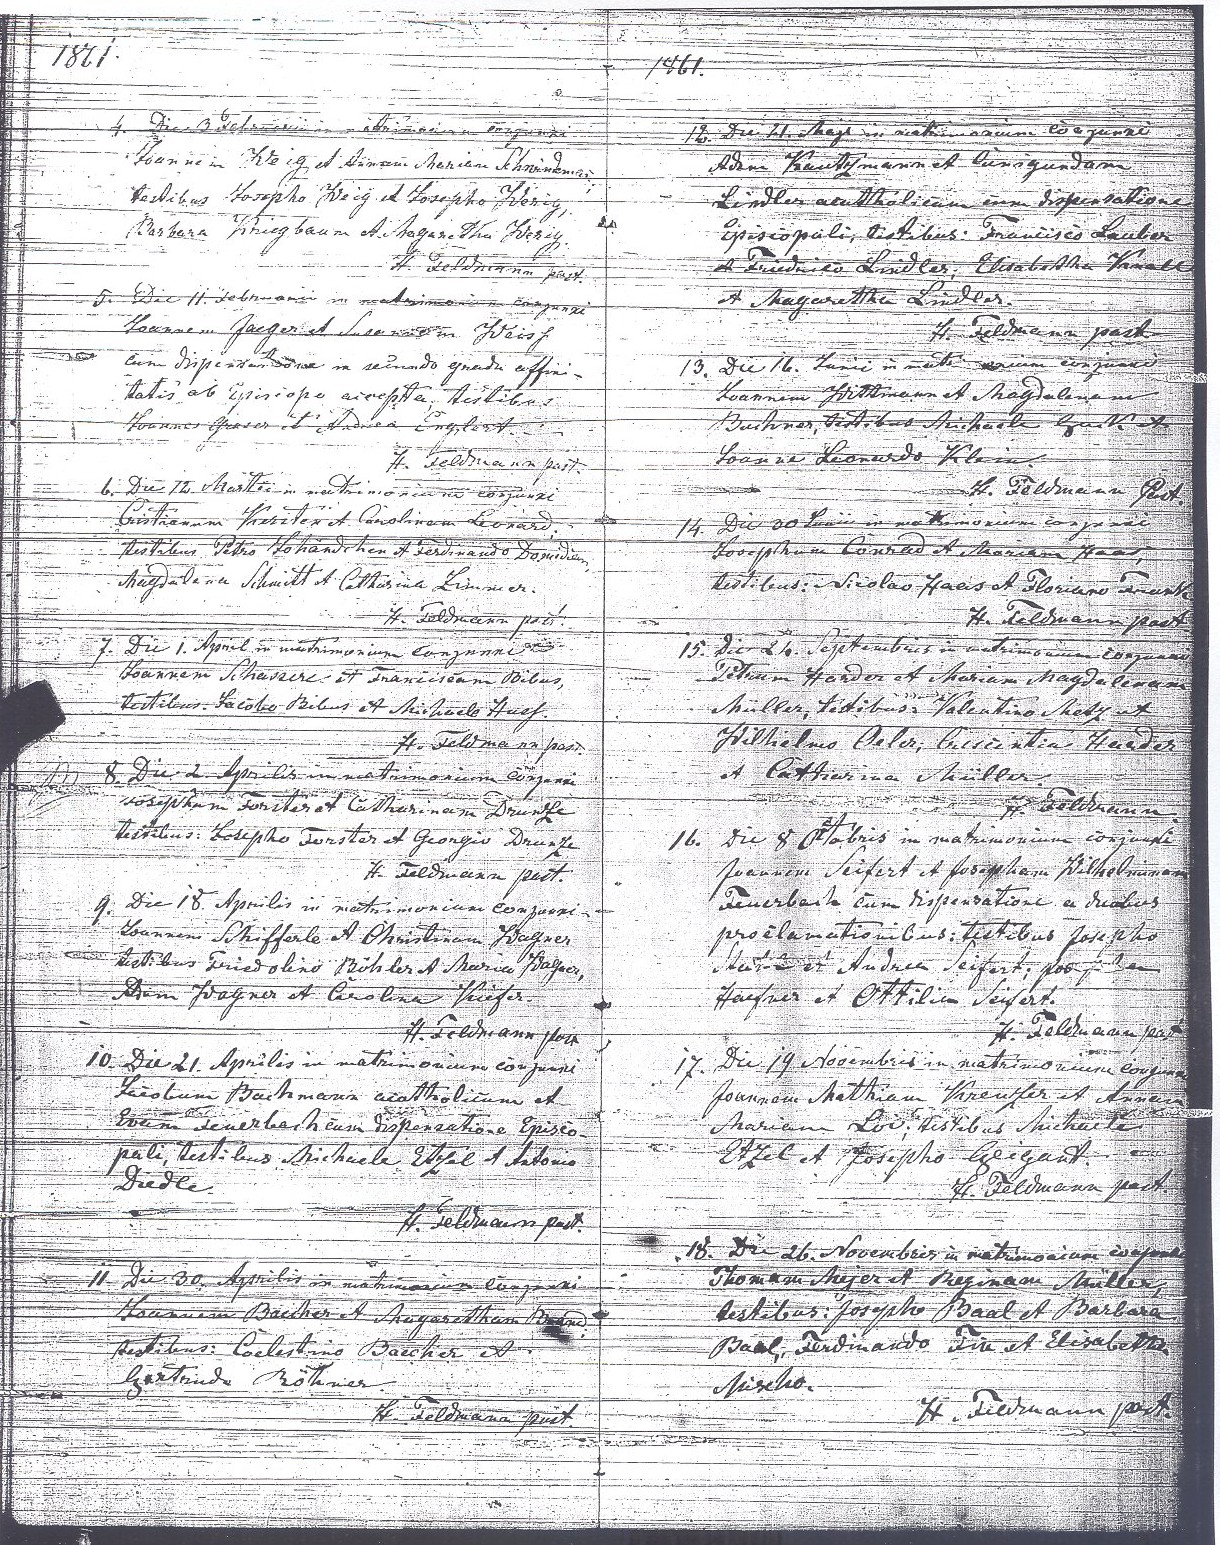 1861.
4. Die 3 Februarii in matrimonium conjunxi
Joannem Weig et Annam Mariam
testibus Josepho Weig et Josepho Werig,
Barbara Kriegbaum et Magaretha Werig.
H. Feldmann past.
5. Die 11. Februarii in matrimonium conjunxi
Joannem Jaeger et Susannam Weiss
cum dispensatione in secundo gradu affini-
tatis ab Episcopo accepta, testibus
Joannes Graser et Andrea Englert.
H. Feldmann past.
6. Die 12. Martii in matrimonium conjunxi
Cristianum et Carolinam Leonard,
testibus Petro et Ferdinando
Magdalena Schmitt et Catharina Limmer.
H. Feldmann past.
7. Die 1. April in matrimonium conjunxi
Joannem et Franciscam Bibus,
testibus: Jacobo Bibus et Michaele Huef.
H. Feldmann past.
8. Die 2 Aprilis in matrimonium conjunxi
Josephum Forster et Catharinam Drunze
testibus: Josepho Forster et Georgio Drunze
H. Feldmann past.
9. Die 18 Aprilis in matrimonium conjunxi
Joannem Schifferle et Christinam Wagner
testibus Friedolino Böhler et Maria Wagner,
Adam Wagner et Carolina Kiefer
H. Feldmann past
10. Die 21. Aprilis in matrimonium conjunxi
Jacobum Bachmann acatholicum et
Evam Feuerbach cum dispensatione Episco-
pali, testibus Michaele Etzel et Antonio
Diedle.
H. Feldmann past.
11. Die 30. Aprilis in matrimonium conjunxi
Joannem Baecher et Magaretham Brand,
testibus: Coelestino Baecher et
Gertruda Röhner.
H. Feldmann past
1861.
12. Die 21. Maji in matrimonium conjunxi
Adam Krautzmann et Cunigundam
Lindler acatholicam cum dispensatione
Episcopali, testibus: Francisco Lauber
et Friedrico Lindler; Elisabetha
et Magaretha Lindler.
H. Feldmann past
13. Die 16. Junii in matrimonium conjunxi
Joannem Wittmann et Magdalenam
Buchner, testibus Michaele et
Joanne Leonardo Klein.
H. Feldmann Past.
14. Die 30 Junii in matrimonium conjunxi
Josephum Conrad et Mariam Haas,
testibus: Nicolao Haas et Floriano Frank
H. Feldmann past
15. Die 24. Septembris in matrimonium conjunxi
Petrum Harder et Mariam Magdalenam
Müller, testibus: Valentino Metz et
Wilhelmo Oeler, Crescentia Harder
et Catharina Müller.
H. Feldmann.
16. Die 8 Octobris in matrimonium conjunxi
Joannem Seifert et Josepham Wilhelminam
Feuerbach cum dispensatione a duabus
proclamationibus: testibus Josepho
et Andrea Seifert;
Haefner et Ottilia Seifert.
H. Feldmann past
17. Die 19 Novembris in matrimonium conjunxi
Joannem Mathiam Kreuzer et Annam
Mariam Loi; testibus Michaele
Etzel et Josepho Geigant.
H. Feldmann past.
18. Die 26. Novembris in matrimonium conjunxi
Thomam Mejer et Reginam Müller,
testibus: Josepho Baal et Barbara
Baal, Ferdinando Fix et Elisabetha
Mischo.
H. Feldmann past.